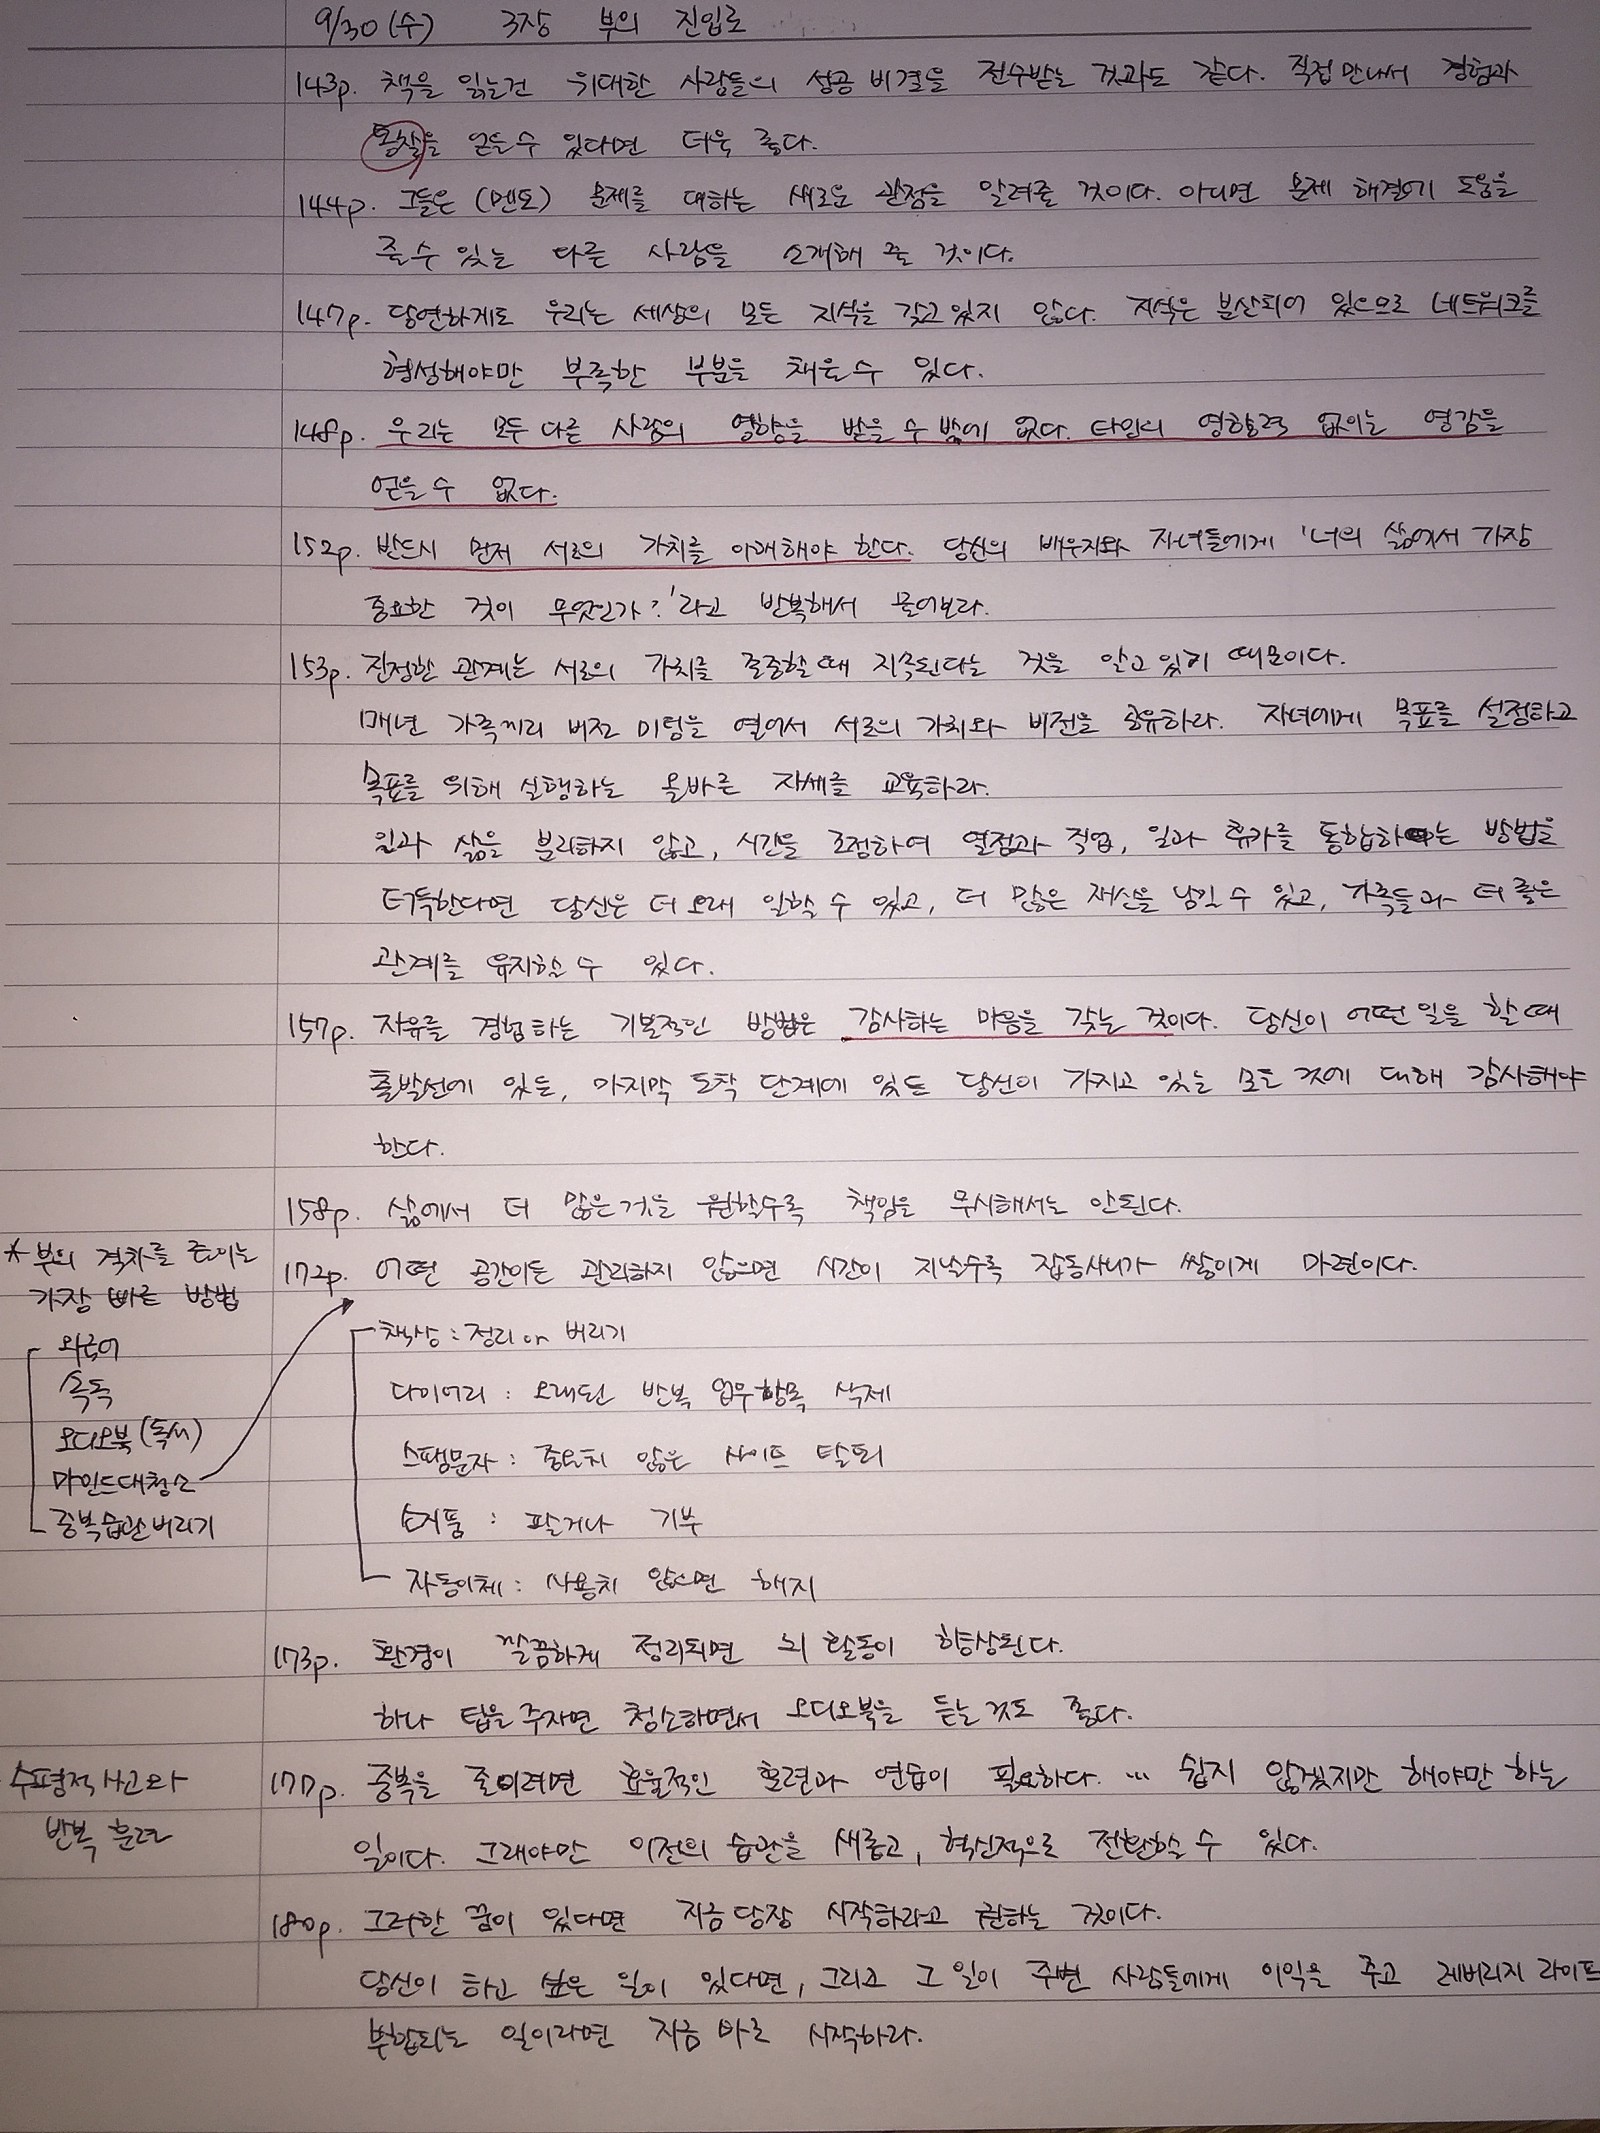 9/30(수) 3장 부의 진입로
143p. 책을 읽는건 위대한 사람들의 성공 비결을 전수받는 것과도 같다. 직접 만나서 경험과
통찰을 얻을 수 있다면 더욱 좋다.
144p. 그들은 (멘토) 문제를 대하는 새로운 관점을 알려줄 것이다. 아니면 문제 해결에 도움을
줄 수 있는 다른 사람을 소개해 줄 것이다.
147p. 당연하게도 우리는 세상의 모든 지식을 갖고 있지 않다. 지식은 분산되어 있으므로 네트워크를
형성해야만 부족한 부분을 채울 수 있다.
148p. 우리는 모두 다른 사람의 영향을 받을 수 밖에 없다. 타인의 영향력 없이는 영감을
얻을 수 없다.
152p. 반드시 먼저 서로의 가치를 이해해야 한다. 당신의 배우자와 자녀들에게 '너의 삶에서 가장
중요한 것이 무엇인가?'라고 반복해서 물어보라.
153p. 진정한 관계는 서로의 가치를 존중할 때 지속된다는 것을 알고 있기 때문이다.
매년 가족끼리 비전 미팅을 열어서 서로의 가치와 비전을 공유하라. 자녀에게 목표를 설정하고
목표를 위해 실행하는 올바른 자세를 교육하라.
일과 삶을 분리하지 않고, 시간을 조정하여 열정과 직업, 일과 휴가를 통합하는 방법을
터득한다면 당신은 더 오래 일할 수 있고, 더 많은 재산을 남길 수 있고, 가족들과 더 좋은
관계를 유지할 수 있다.
157p. 자유를 경험하는 기본적인 방법은 감사하는 마음을 갖는 것이다. 당신이 어떤 일을 할 때
출발선에 있든, 마지막 도착 단계에 있든 당신이 가지고 있는 모든 것에 대해 감사해야
한다.
158p. 삶에서 더 많은 것을 원할수록 책임을 무시해서는 안된다.
* 부의 격차를 줄이는
가장 빠른 방법
외국어
속독
오디오북(독서)
마인드대청소
중복습관버리기
172p. 어떤 공간이든 관리하지 않으면 시간이 지날수록 잡동사니가 쌓이게 마련이다.
책상 : 정리 or 버리기
다이어리 : 오래된 반복 업무항목 삭제
스팸문자 : 중요치 않은 사이트 탈퇴
소지품 : 팔거나 기부
자동이체 : 사용치 않으면 해지
173p. 환경이 깔끔하게 정리되면 뇌 활동이 향상된다.
하나 팁을 주자면 청소하면서 오디오북을 듣는 것도 좋다.
수평적 사고와
반복 훈련
177p. 중복을 줄이려면 효율적인 훈련과 연습이 필요하다. … 쉽지 않겠지만 해야만 하는
일이다. 그래야만 이전의 습관을 새롭고, 혁신적으로 전환할 수 있다.
180p. 그러한 꿈이 있다면 지금 당장 시작하라고 권하는 것이다.
당신이 하고 싶은 일이 있다면, 그리고 그 일이 주변 사람들에게 이익을 주고 레버리지 라이프
부합되는 일이라면 지금 바로 시작하라.